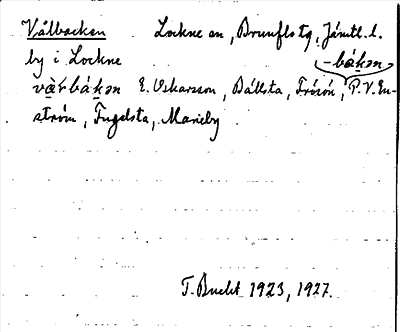 Vålbacken Lockne sn, Brunflo tg, Jämtl. l.
by i Lockne -båkən
vàrbákən E. Oskarsson, Bällsta, Frösön, P.V. En-
ström, Fugelsta, Marieby
T. Bucht 1923, 1927.